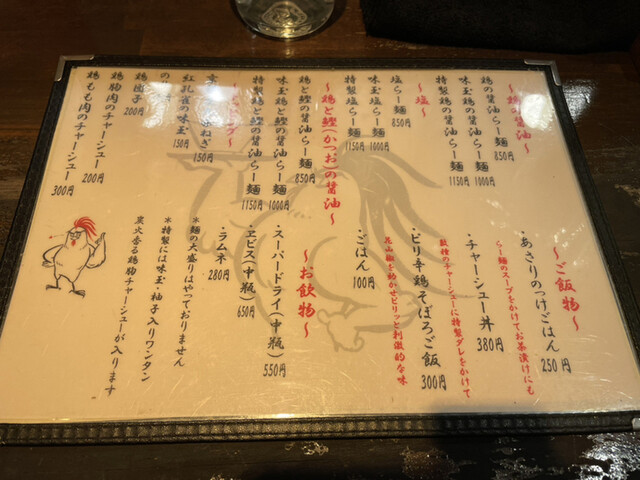 ～鶏の醤油～
鶏の醤油らー麺 850円
味玉鶏の醤油らー麺 1000円
特製鶏の醤油らー麺 1150円
～塩～
塩らー麺 850円
味玉塩らー麺 1000円
特製塩らー麺 1150円
～鶏と鰹(かつお)の醤油～
鶏と鰹の醤油らー麺 850円
味玉鶏と鰹の醤油らー麺 1000円
特製鶏と鰹の醤油らー麺 1150円
ねぎ 150円
紅孔雀の味玉 150円
の
鶏団子 200円
鶏胸肉のチャーシュー 200円
鶏もも肉のチャーシュー 300円
～ご飯物～
・あさりのつけごはん 250円
らー麺のスープをかけてお茶漬けにも
・チャーシュー丼 380円
数種のチャーシューに特製ダレをかけて
・ピリ辛鶏そぼろご飯 300円
花山椒を効かせピリッと刺激的な味
・ごはん 100円
～お飲物～
・スーパードライ(中瓶) 550円
・ヱビス(中瓶) 650円
・ラムネ 280円
＊麺の大盛りはやっておりません
＊特製には味玉・柚子入りワンタン
炭火香る鶏胸チャーシューが入ります